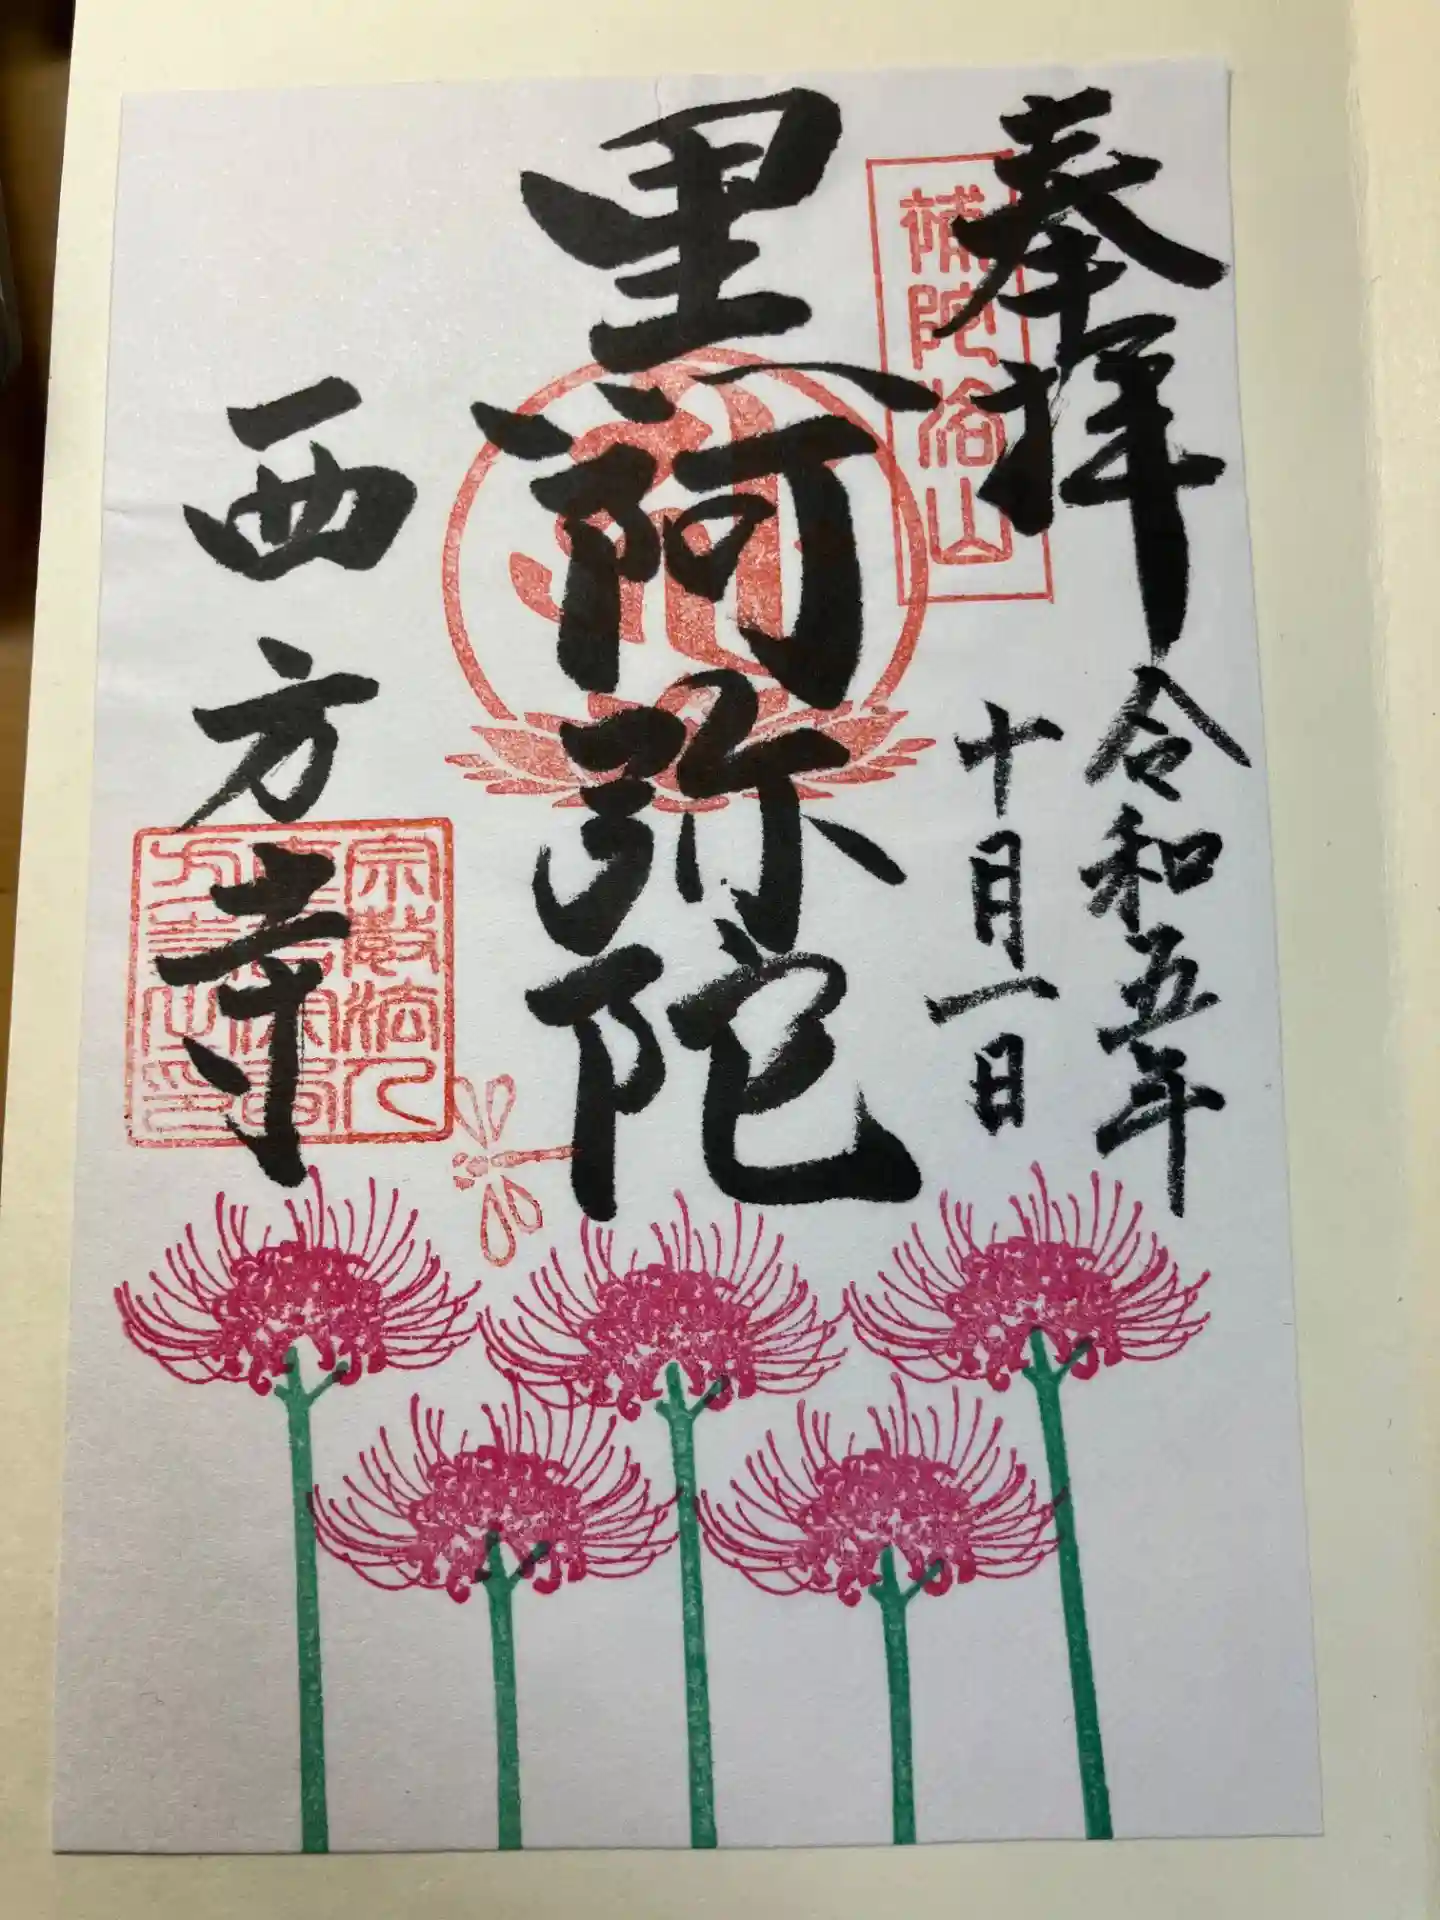 奉拝
令和五年
十月一日
補陀洛山
黒阿弥陀
西方寺